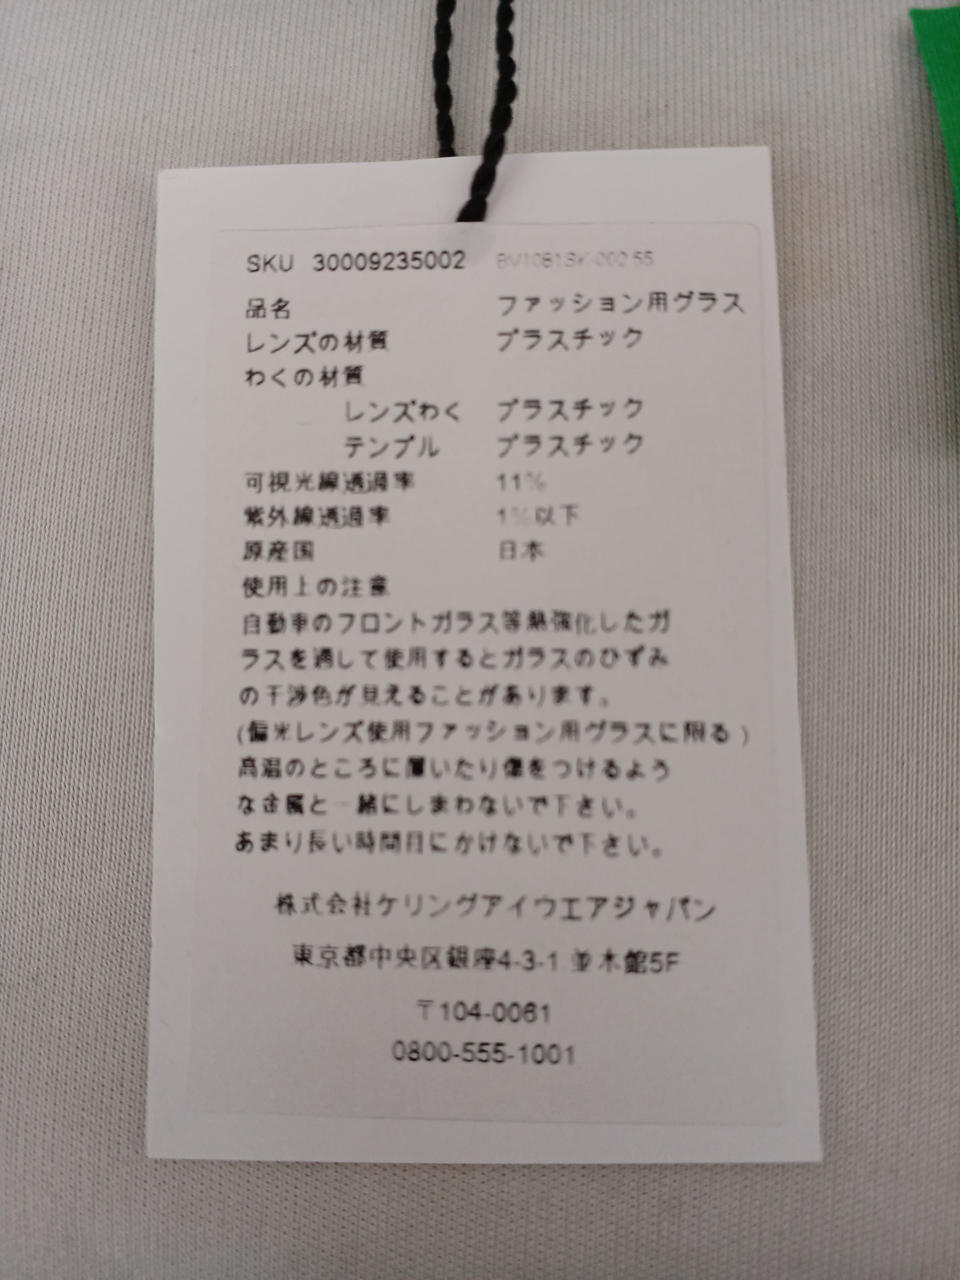 SKU 30009235002 BV1081SK-002 55
品名 ファッション用グラス
レンズの材質 プラスチック
わくの材質
レンズわく プラスチック
テンプル プラスチック
可視光線透過率 11%
紫外線透過率 1%以下
原産国 日本
使用上の注意
自動車のフロントガラス等熱強化したガ
ラスを通して使用するとガラスのひずみ
の干渉色が見えることがあります。
(偏光レンズ使用ファッション用グラスに限る )
高温のところに置いたり傷をつけるよう
な金属と一緒にしまわないで下さい。
あまり長い時間目にかけないで下さい。
株式会社ケリングアイウエアジャパン
東京都中央区銀座4-3-1 並木館5F
〒104-0061
0800-555-1001